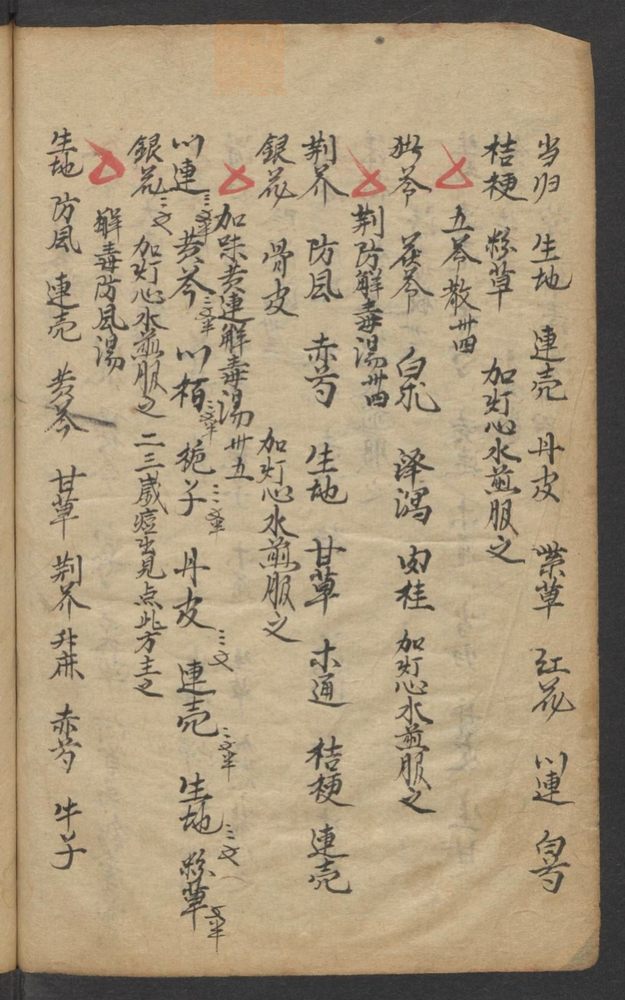 当归 生地 連壳 丹皮 紫草 红花 川連 白芍
桔梗 粉草 加灯心水煎服之
五苓散卅四
猪苓 茯苓 白朮 泽瀉 肉桂 加灯心水煎服之
荆防解毒湯卅四
荆芥 防風 赤芍 生地 甘草 木通 桔梗 連壳
銀花 骨皮 加灯心水煎服之
加味黄連解毒湯卅五
川連 黄芩 川栢 栀子 丹皮 連壳 生地 粉草
銀花 加灯心水煎服之 二三歲痘出見点此方主之
解毒防風湯
生地 防風 連壳 黄芩 甘草 荆芥 升麻 赤芍 牛子